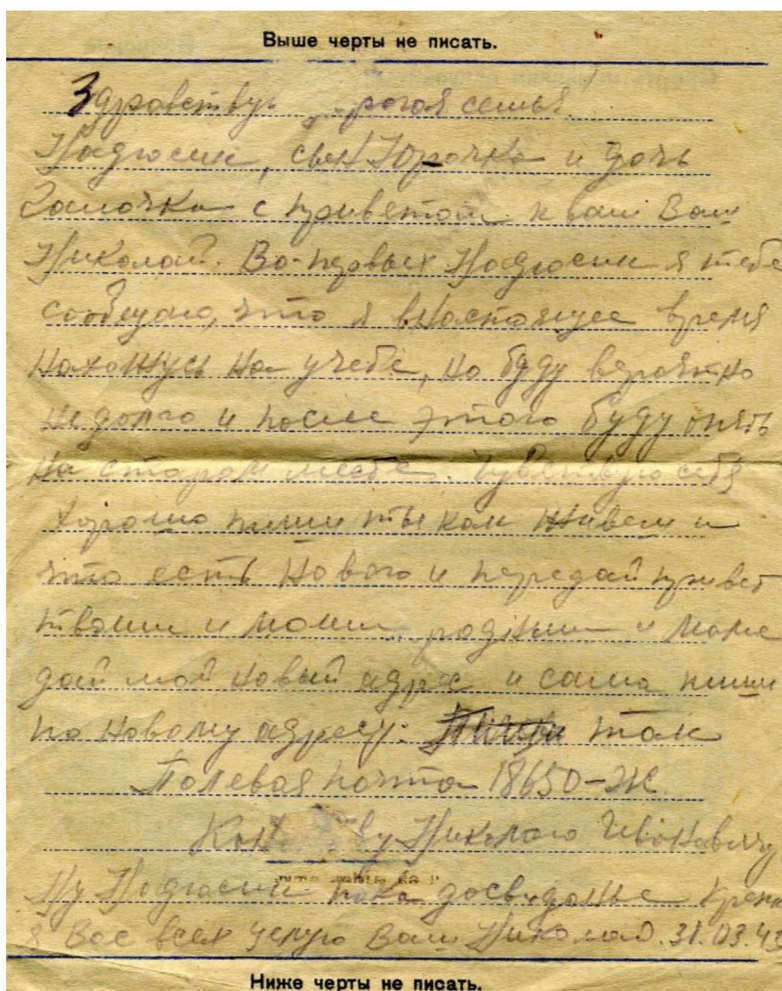 Выше черты не писать.
Здравствуй рогая семья
Надюсик, сын Юрочка и дочь
с приветом к вам Ваш
Николай. Во-первых Надюсик я тебе
сообщаю, что я внастоящее время
нахожусь на учебе, но буду вероятно
не долго и после этого буду опять
на старом месте. Чувствую себя
хорошо пиши ты как живеш и
что есть нового и передай привет
твоим и моим родным и маме
дай мой новый адрес и сама пиши
по новому адресу: так
Полевая почта 18650-Ж
ву Николаю Ивановичу
Ну Надюсик пока досвиданье Креп
я Вас всех целую Ваш Николай. 31.03.43
Ниже черты не писать.